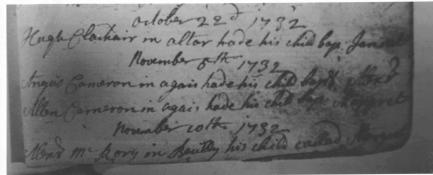 October 22d 1732
Hugh Clachair in altar hade his child bap. Janet
November 5th 1732
Angus Cameron in agais hade his child bapt
Allen Cameron in agais hade his child bap Margret
November 10th 1732
Alexr Mc Rory in his child called